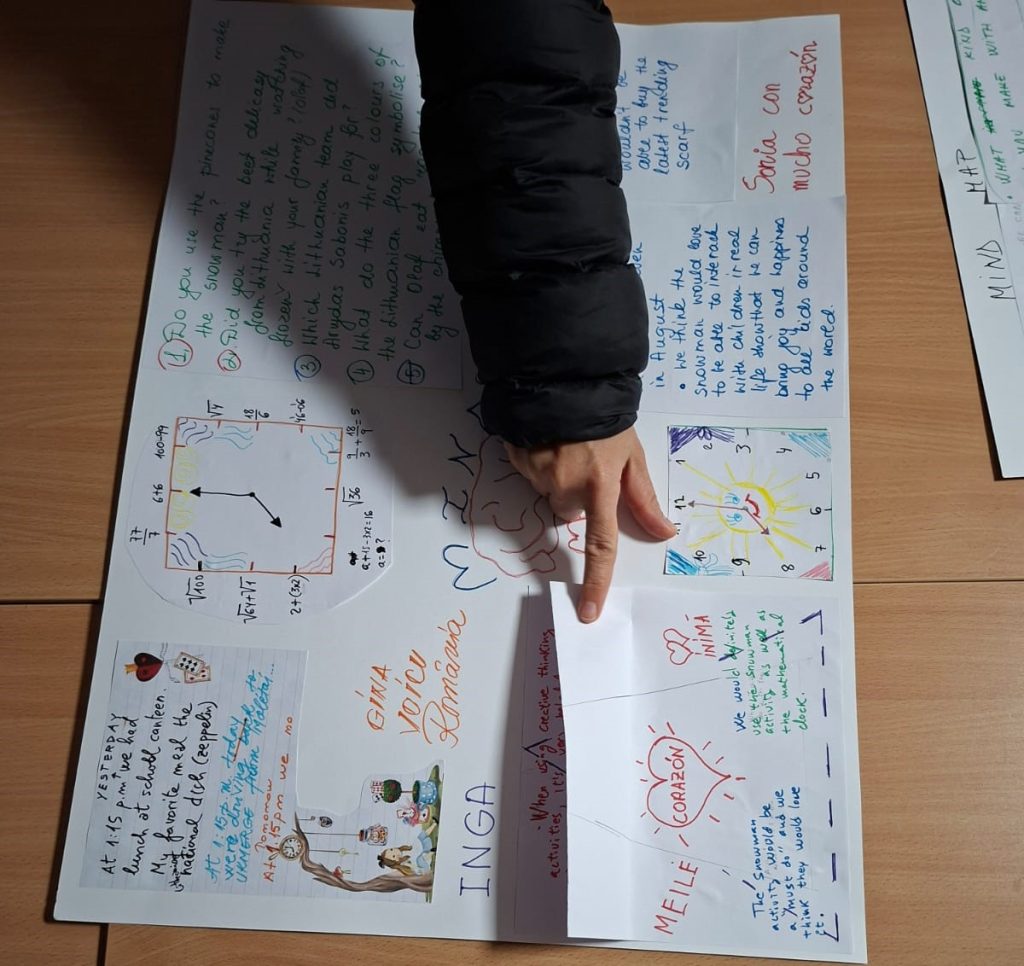 YESTERDAY
At 1:15 p.m. we had
lunch at school canteen.
My favorite meal the
national dish (zeppelin)
At 1:15 p.m. today
were driving
from
At 1.15pm we
Tomorrow
77/7
6+6
100-99
√4
18/6
46-06
9/3 + 18/9 = 5
√36
a+15-3x2=16
a=?
2+(3x2)
√64+√1
√100
1. Do you use the pinecones to make
the snowman?
2. Did you try the best delicacy
from Lithuania while watching
frozen with your family? (Olaf)
3 Which Lithuanian team did
Arvydas Sabonis play for?
4 What do the three colours of
the Lithuanian flag symbolise?
5 Can Olaf eat
by the
INGA
GINA
VOICU
România
MIN
When using creative thinking
activities, it's
MEILE
CORAZÓN
INIMĂ
The snowman
activity would be
a "must do" and we
think they would love
it.
We would definitely
use the snowman
activity as well as
the mathematical
clock.
10
12
1
2
3
4
5
6
7
8
9
in August
• We think the
snowman would love
to be able to interact
with children in real
life so that he can
bring joy and happiness
to all kids around
the world.
wouldn't be
able to buy the
latest trending
scarf
Sonia con
mucho corazón
MIND MAP
WHAT KIND
YOU MAKE WITH